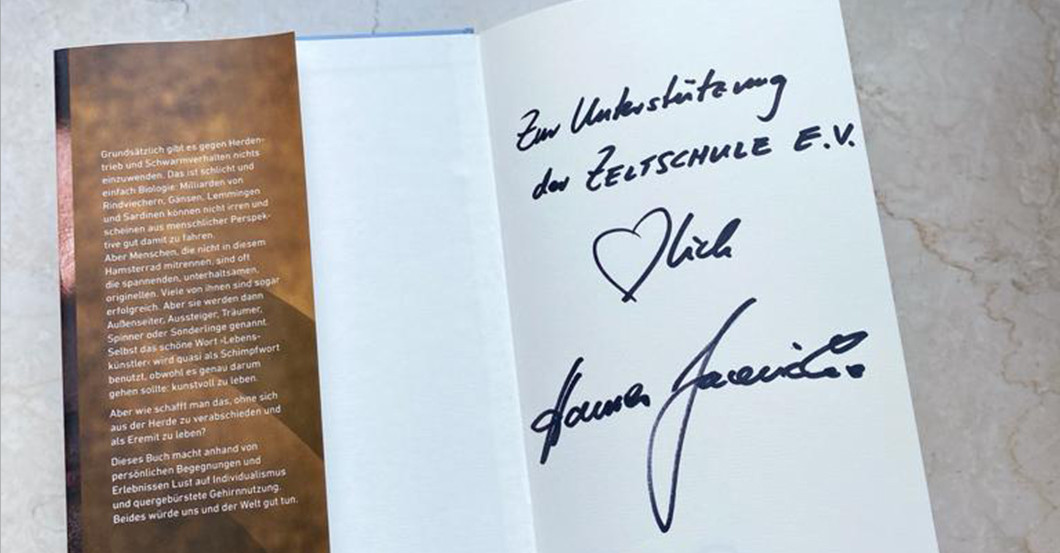 Grundsätzlich gibt es gegen Herden-
trieb und Schwarmverhalten nichts
einzuwenden. Das ist schlicht und
einfach Biologie: Milliarden von
Rindviechern, Gänsen, Lemmingen
und Sardinen können nicht irren und
scheinen aus menschlicher Perspek-
tive gut damit zu fahren.
Aber Menschen, die nicht in diesem
Hamsterrad mitrennen, sind oft
die spannenden, unterhaltsamen,
originellen. Viele von ihnen sind sogar
erfolgreich. Aber sie werden dann
Außenseiter, Aussteiger, Träumer,
Spinner oder Sonderlinge genannt.
Selbst das schöne Wort ›Lebens-
künstler‹ wird quasi als Schimpfwort
benutzt, obwohl es genau darum
gehen sollte: kunstvoll zu leben.
Aber wie schafft man das, ohne sich
aus der Herde zu verabschieden und
als Eremit zu leben?
Dieses Buch macht anhand von
persönlichen Begegnungen und
Erlebnissen Lust auf Individualismus
und quergebürstete Gehirnnutzung.
Beides würde uns und der Welt gut tun.
Zur Unterstützung
der ZELTSCHULE E.V.
♡lich
Hannes